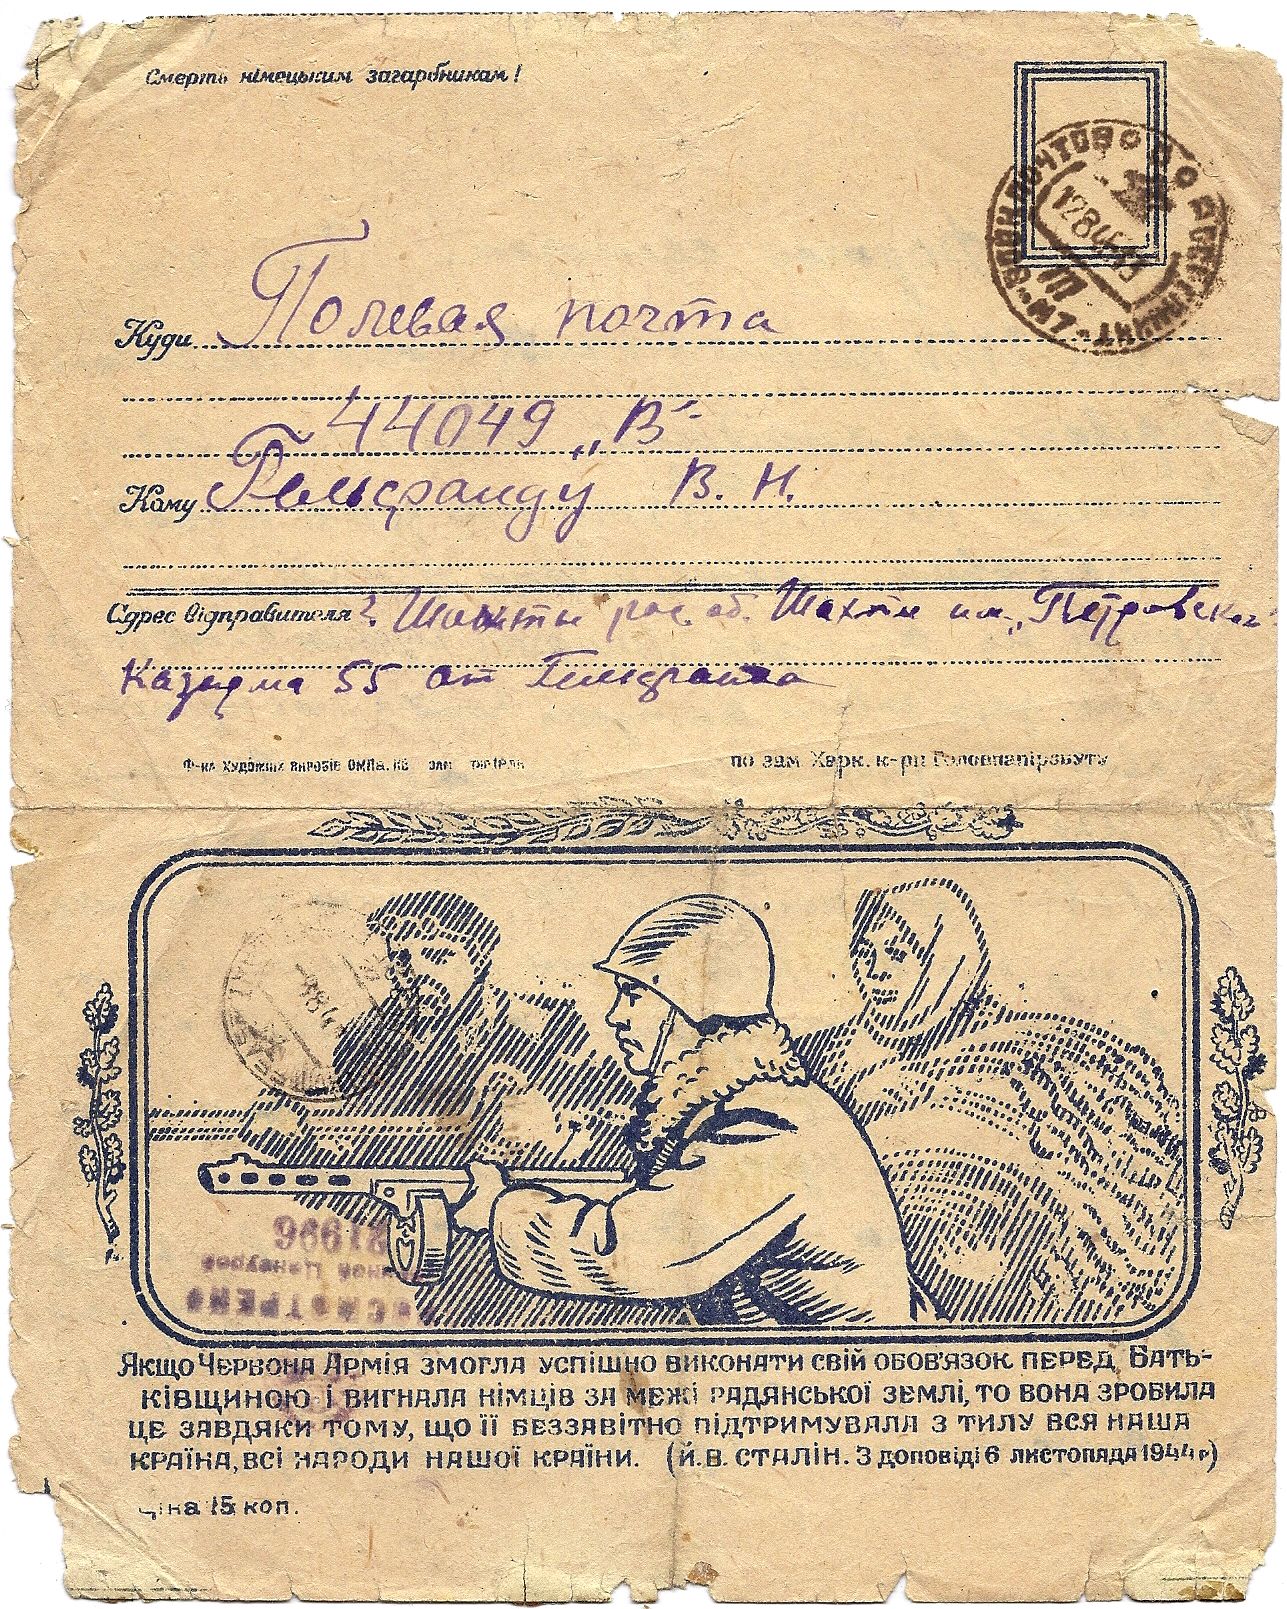 Смерть німецьким загарбникам!
Куди Полевая почта
44049 „В"
Кому Гельфанду В. Н.
Адрес відправителя г. Шахты рос. об. Шахты им. „Петровског
Казарма 55 от Гельфанда
Ф-ка художніх виробів
по зам Харк. к-ри Головпапірзбуту
12 8 45
21996
Якщо Червона Армія змогла успішно виконати свій обов'язок перед Бать-
ківщиною і вигнала німців за межі радянської землі, то вона зробила
це завдяки тому, що її беззавітно підтримувала з тилу вся наша
країна, всі народи нашої країни. (Й. В. Сталін. З доповіді 6 листопада 1944 р)
Ціна 15 коп.